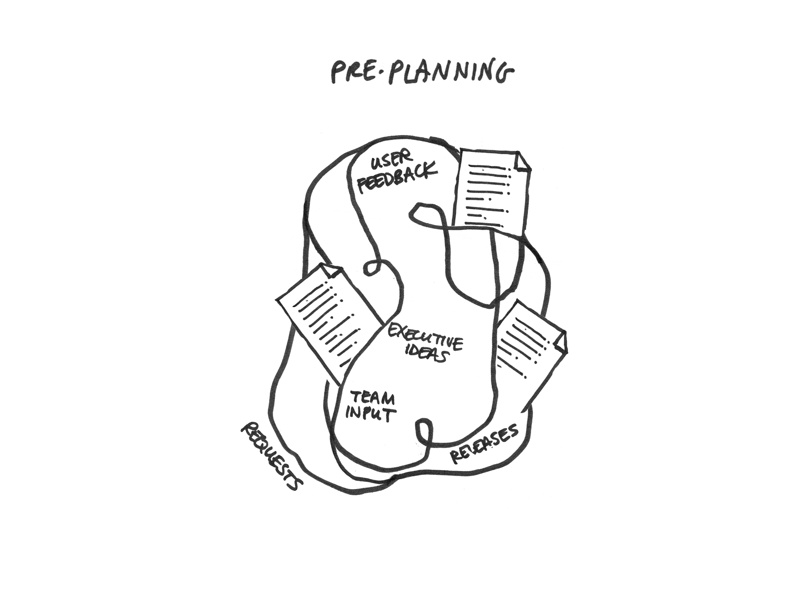 PRE·PLANNING
USER
FEEDBACK
EXECUTIVE
IDEAS
TEAM
INPUT
RELEASES
REQUESTS